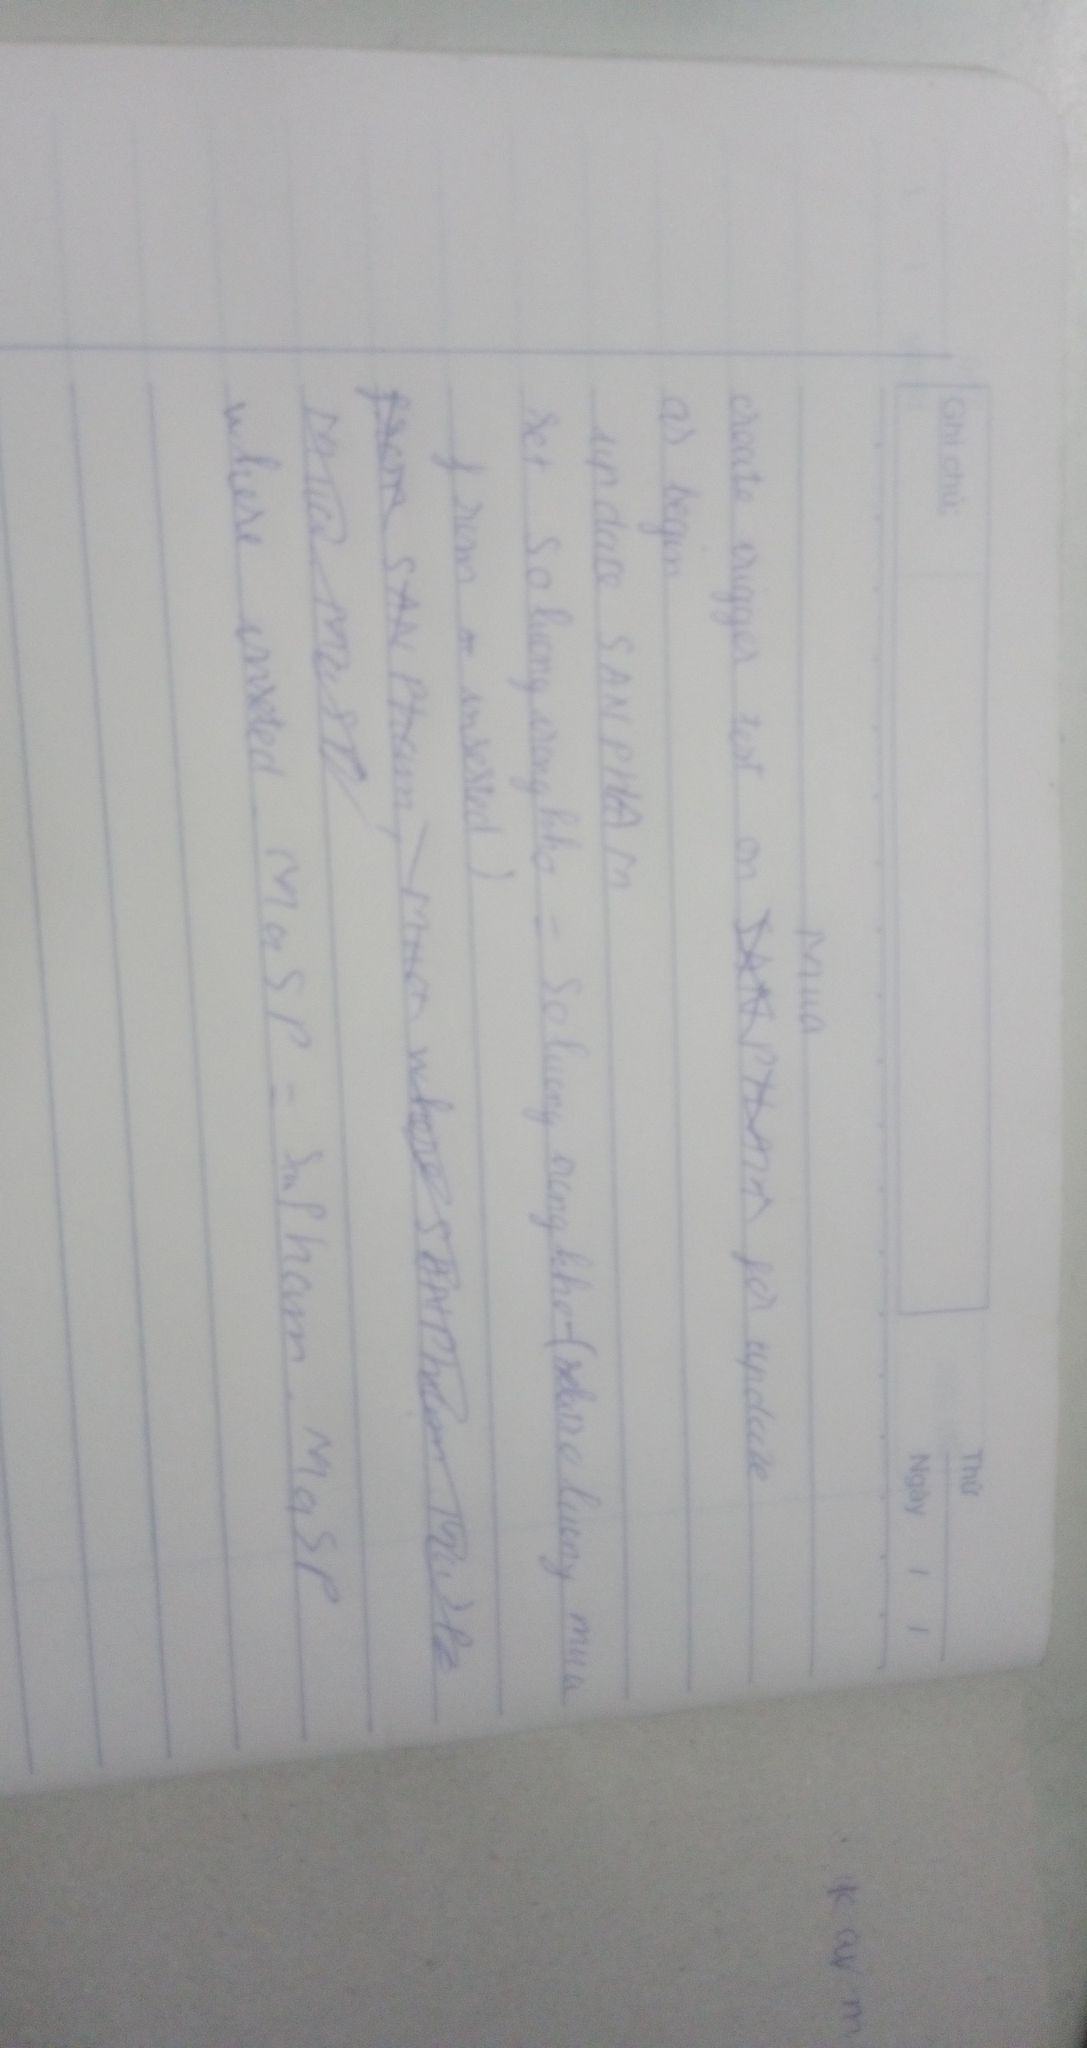 Ghi chú:
Thứ
Ngày / /
Mua
create trigger test on SANPHAM for update
as begin
update SANPHAM
set Soluongtrongkho = Soluong trongkho-(select so luong mua
from inserted)
from SANPHam, where SANPham MaSP=
where inseted. MaSP = Sanpham. MaSP